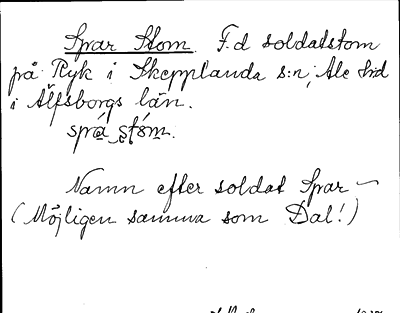 Spar Stom. F.d soldatstom
på Ryk i Skepplanda s:n, Ale hd
i Älfsborgs län.
sprá stóm.
Namn efter soldat Spar –
(Möjligen samma som Dal!)